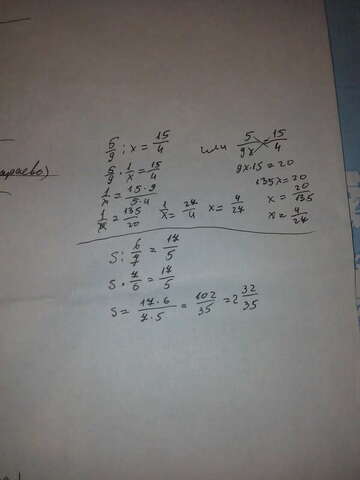 араево)
5/9 : x = 15/4 или 5/9x = 15/4
5/9 · 1/x = 15/4 9x·15=20
1/x = 15·9/5·4 135x=20
1/x = 135/20 1/x = 27/4 x = 4/27 x = 20/135
x = 4/27
S : 6/7 = 17/5
S · 7/6 = 17/5
S = 17·6/7·5 = 102/35 = 2 32/35